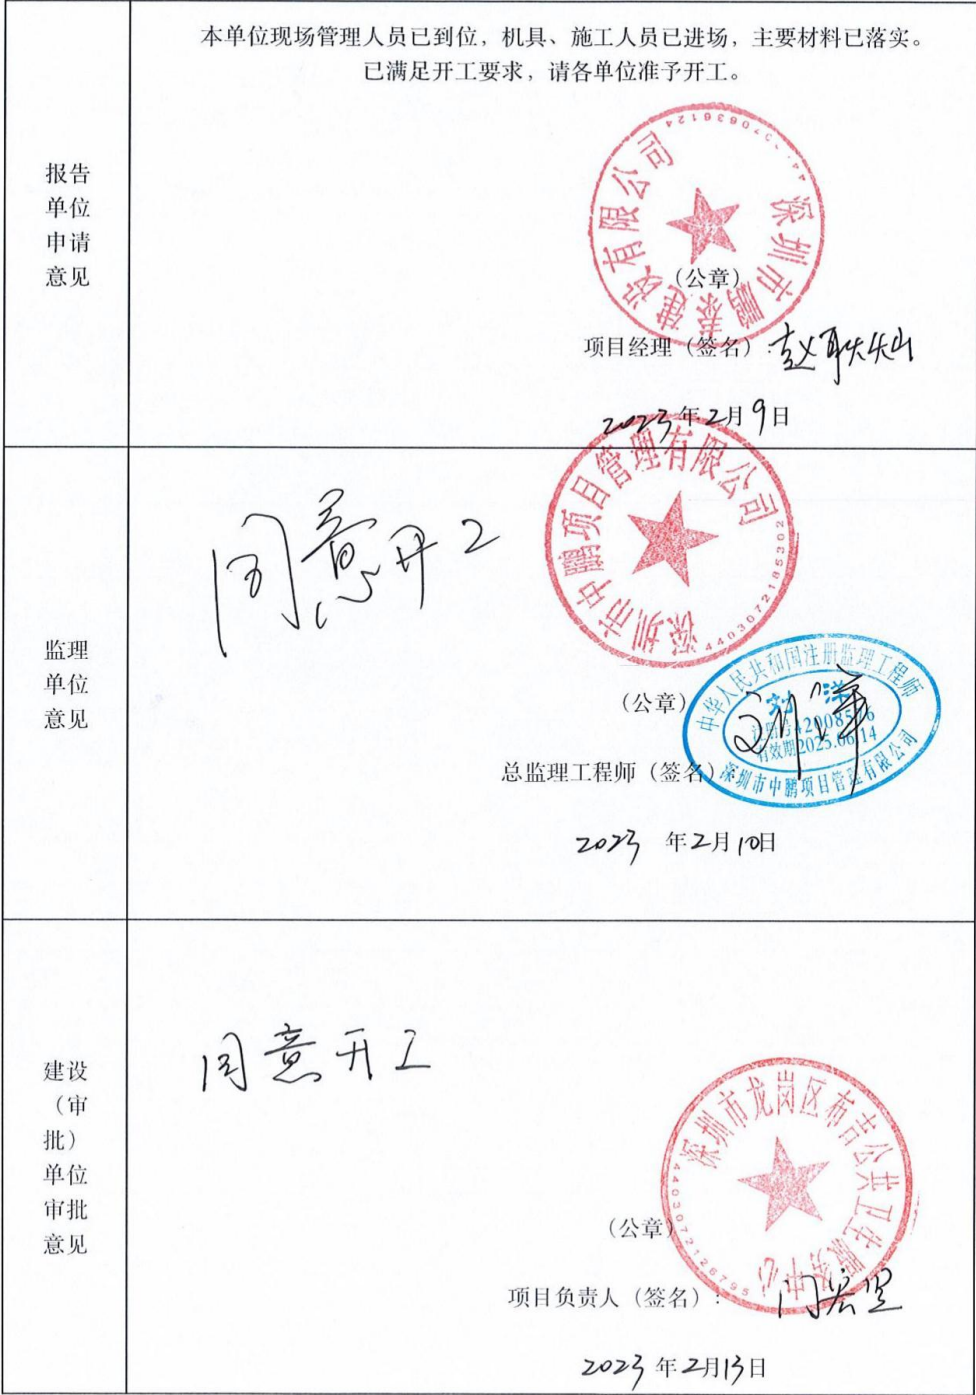 本单位现场管理人员已到位，机具、施工人员已进场，主要材料已落实。
已满足开工要求，请各单位准予开工。
报告
单位
申请
意见
深圳市鹏泰建设有限公司
（公章）
项目经理（签名）：赵耿灿
2023年2月9日
监理
单位
意见
同意开工
深圳市中鹏项目管理有限公司
4403072185302
（公章）
中华人民共和国注册监理工程师
刘洋
有效期2025.06.14
深圳市中鹏项目管理有限公司
总监理工程师（签名）
刘洋
2023 年2月10日
建设
（审
批）
单位
审批
意见
同意开工
深圳市龙岗区布吉公共卫生服务中心
4403072126795
（公章）
项目负责人（签名）：
2023年2月13日